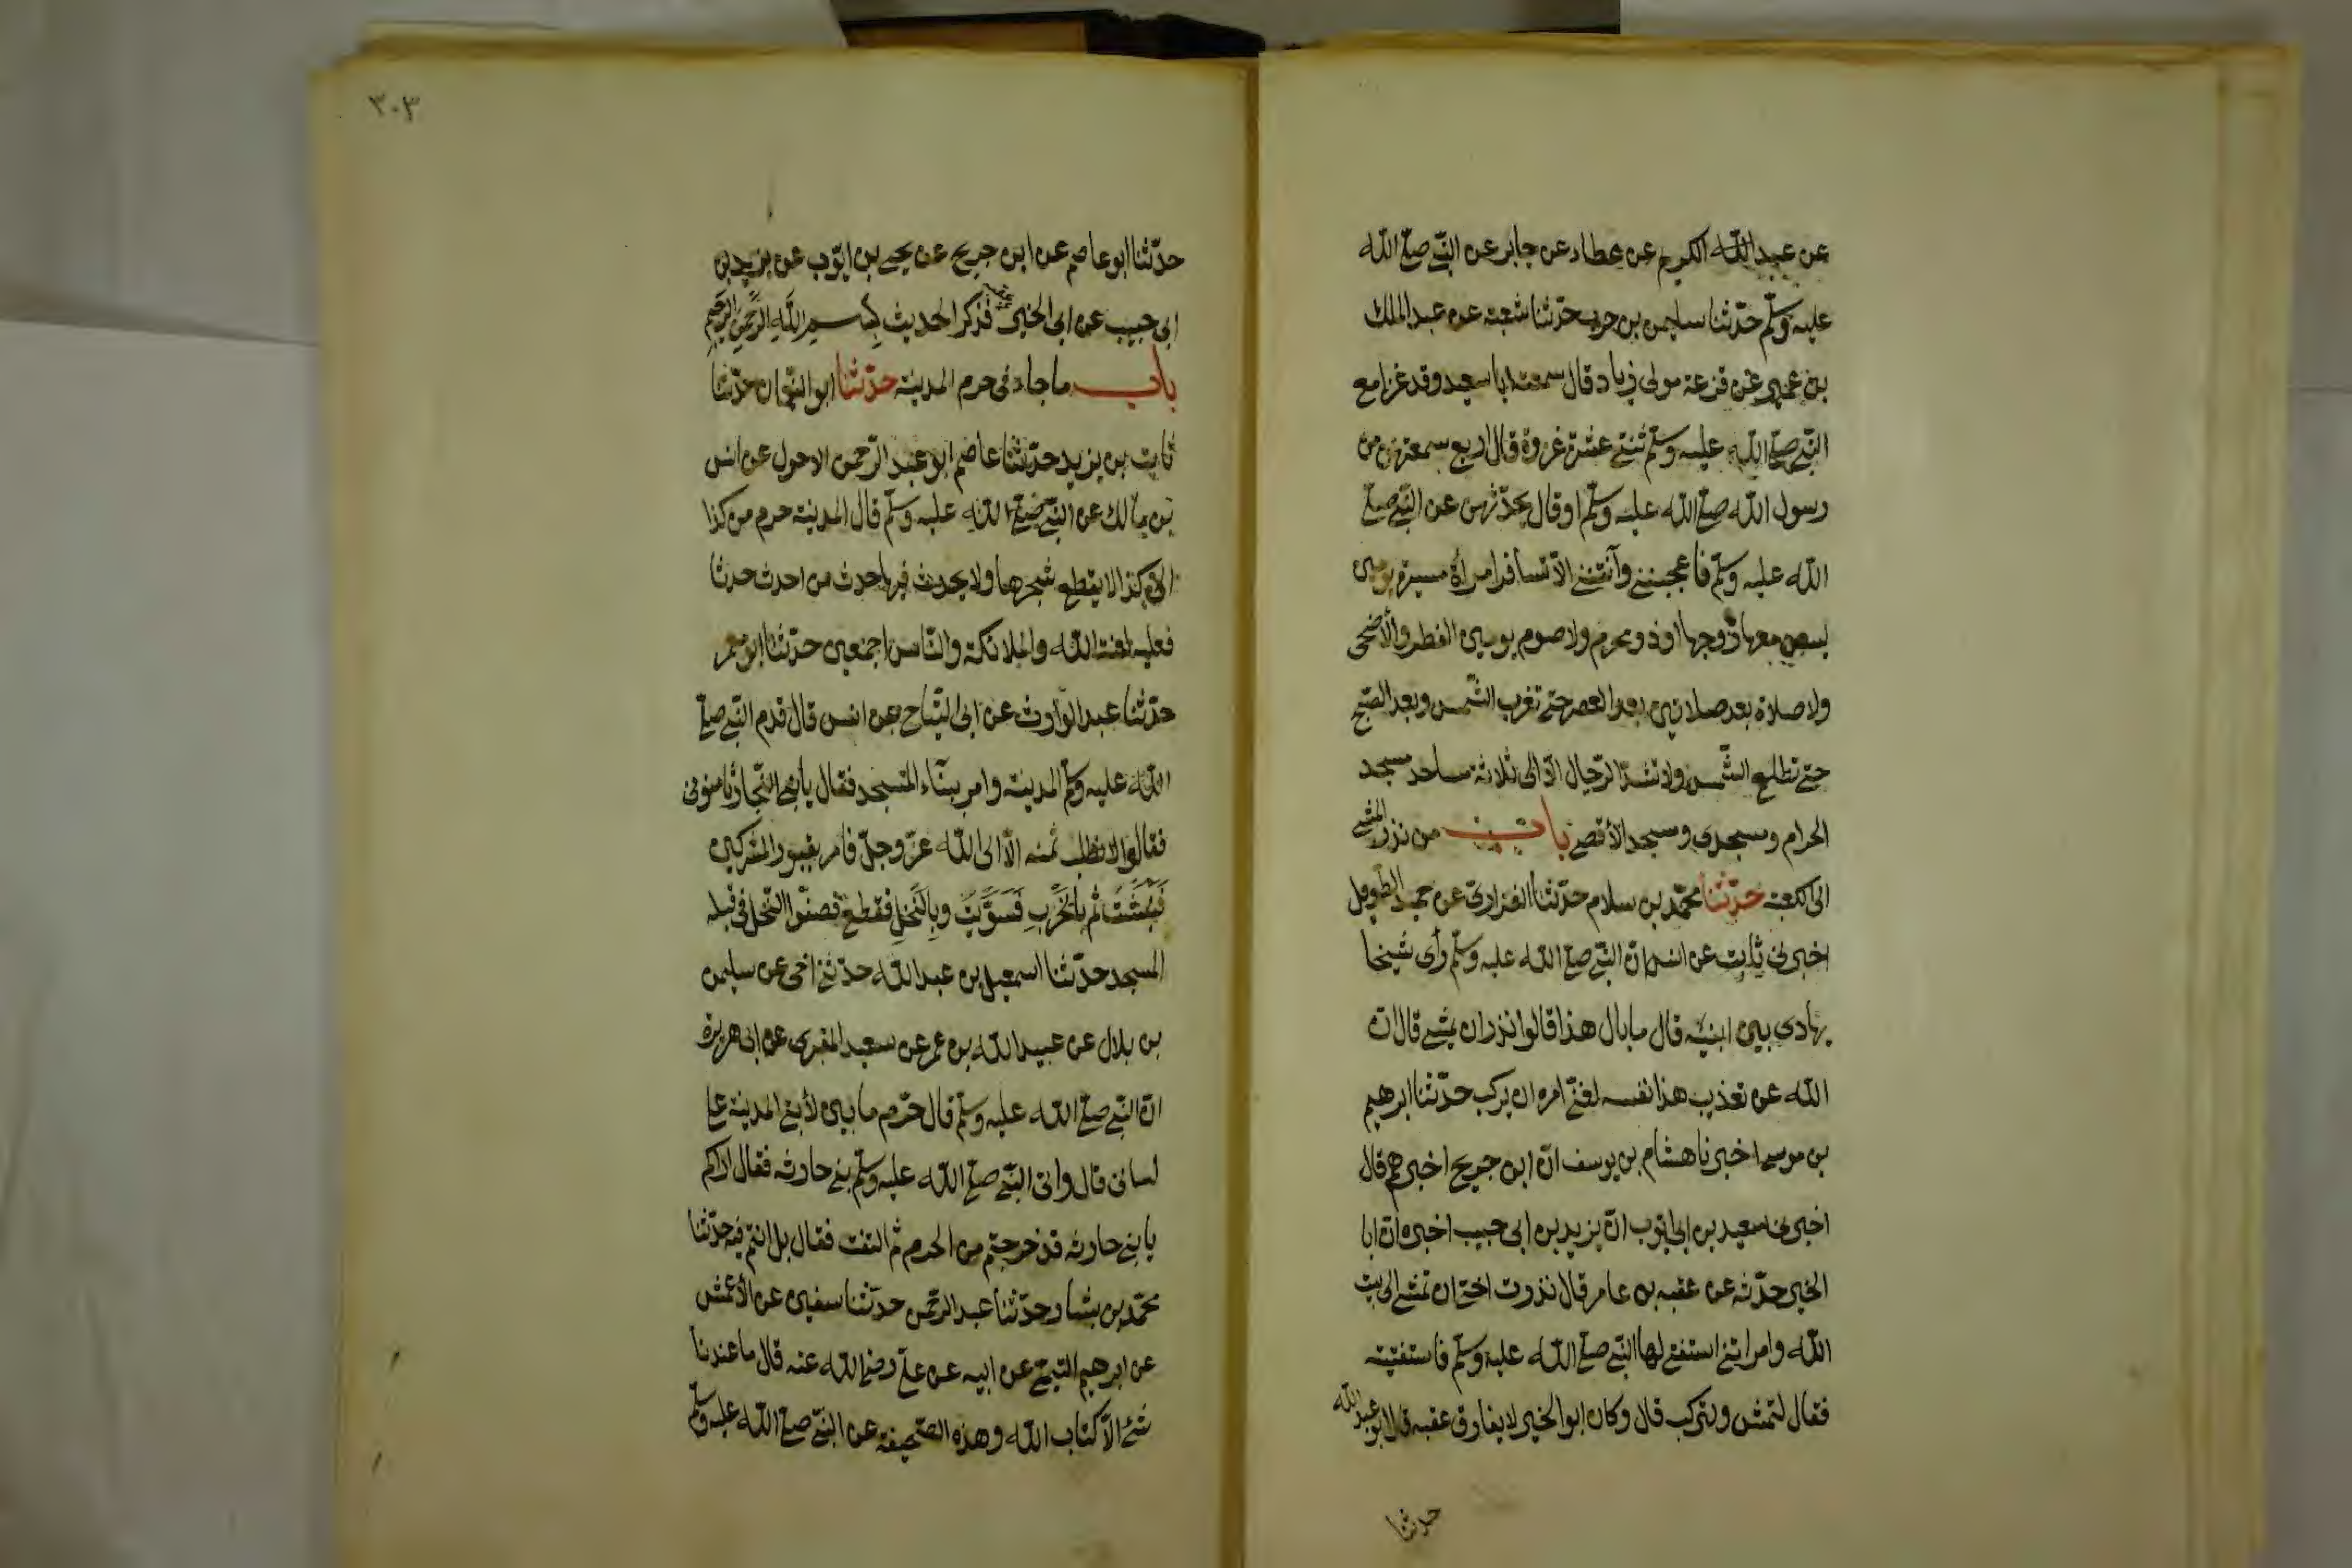 عن عبد الله الكريم عن عطاء عن جابر عن النبي صلى الله
عليه وسلم حدثنا سليمن بن حرب حدثنا شعبة عن عبد الملك
بن عمير عن قزعة مولى زياد قال سمعت ابا سعيد وقد غزا مع
النبي صلى الله عليه وسلم ثنتي عشرة غزوة قال اربع سمعتهن من
رسول الله صلى الله عليه وسلم او قال يحدثهن عن النبي صلى
الله عليه وسلم فاعجبنني وآنقنني الا تسافر امرأة مسيرة يومين
ليس معها زوجها او ذو محرم ولا صوم يومين الفطر والأضحى
ولا صلاة بعد صلاتين بعد العصر حتى تغرب الشمس وبعد الصبح
حتى تطلع الشمس ولا تشد الرحال الا الى ثلاثة مساجد مسجد
الحرام ومسجدي ومسجد الأقصى باب من نذر المشي
الى الكعبة حدثنا محمد بن سلام حدثنا الفزاري عن حميد الطويل
اخبرني ثابت عن انس ان النبي صلى الله عليه وسلم رأى شيخا
يهادى بين ابنيه قال ما بال هذا قالوا نذر ان يمشي قال ان
الله عن تعذيب هذا نفسه لغني امره ان يركب حدثنا ابرهيم
بن موسى اخبرنا هشام بن يوسف ان ابن جريج اخبرهم قال
اخبرني سعيد بن ابي ايوب ان يزيد بن ابي حبيب اخبره ان ابا
الخير حدثه عن عقبه بن عامر قال نذرت اختي ان تمشي الى بيت
الله وامرتني استفتي لها النبي صلى الله عليه وسلم فاستفتيته
فقال لتمش ولتركب قال وكان ابو الخير لا يفارق عقبه قال ابو عبد الله
حدثنا
٣٠٣
حدثنا ابو عاصم عن ابن جريج عن يحيى بن ايوب عن يزيد بن
ابي حبيب عن ابي الخير عن عقبة فذكر الحديث بسم الله الرحمن الرحيم
باب ما جاء في حرم المدينة حدثنا ابو النعمان حدثنا
ثابت بن يزيد حدثنا عاصم ابو عبد الرحمن الاحول عن انس
بن مالك عن النبي صلى الله عليه وسلم قال المدينة حرم من كذا
الى كذا لا يقطع شجرها ولا يحدث فيها حدث من احدث حدثا
فعليه لعنة الله والملائكة والناس اجمعين حدثنا ابو معمر
حدثنا عبد الوارث عن ابي التياح عن انس قال قدم النبي صلى
الله عليه وسلم المدينة وامر ببناء المسجد فقال يا بني النجار ثامنوني
فقالوا لا نطلب ثمنه الا الى الله عز وجل فامر بقبور المشركين
فَنُبِشَتْ ثم بالخَرِبِ فَسُوِّيَتْ وبِالنَّخلِ فقطع فصفّوا النخل في قبله
المسجد حدثنا اسمعيل بن عبد الله حدثني اخي عن سليمن
بن بلال عن عبيد الله بن عمر عن سعيد المقبري عن ابي هريرة
ان النبي صلى الله عليه وسلم قال حرم ما بين لابتي المدينة على
لساني قال واتى النبي صلى الله عليه وسلم بني حارثه فقال اراكم
يا بني حارثه قد خرجتم من الحرم ثم التفت فقال بل انتم فيه حدثنا
محمد بن بشار حدثنا عبد الرحمن حدثنا سفين عن الأعمش
عن ابرهيم التيمي عن ابيه عن علي رضي الله عنه قال ما عندنا
شئ الا كتاب الله وهذه الصحيفة عن النبي صلى الله عليه وسلم